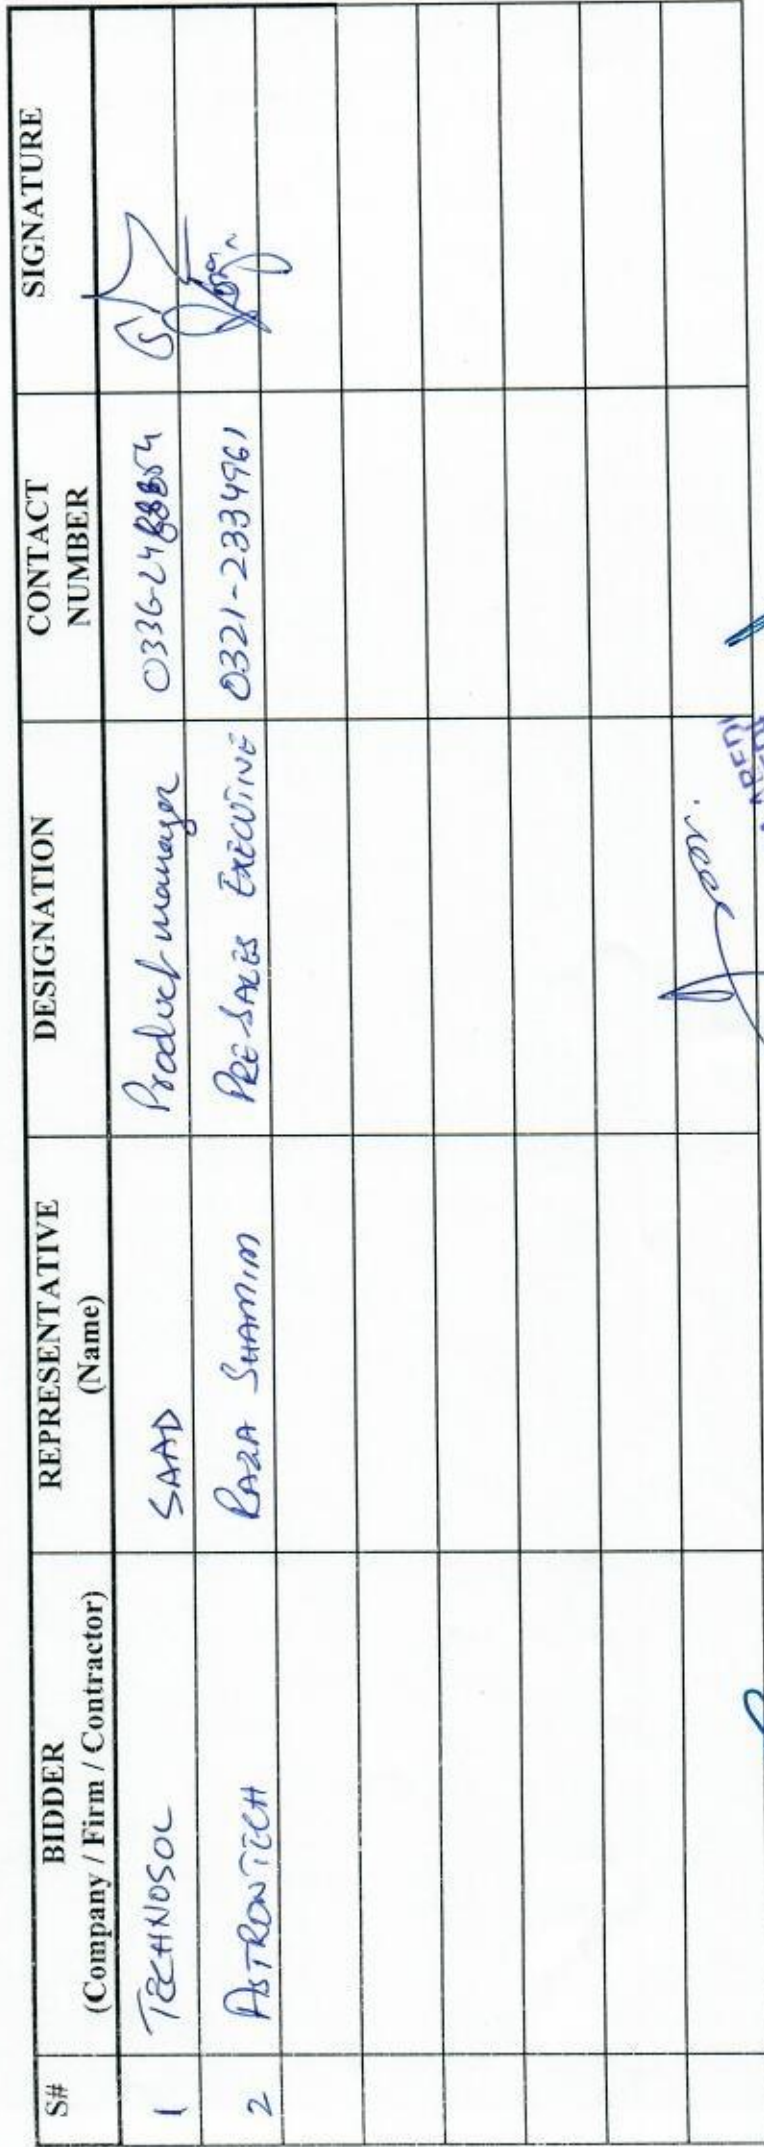 S# BIDDER (Company / Firm / Contractor) REPRESENTATIVE (Name) DESIGNATION CONTACT NUMBER SIGNATURE
1 TECHNOSOL SAAD Product manager
2 ASTRONTECH RAZA SHAMIM PRE-SALES EXECUTIVE 0321-2334961